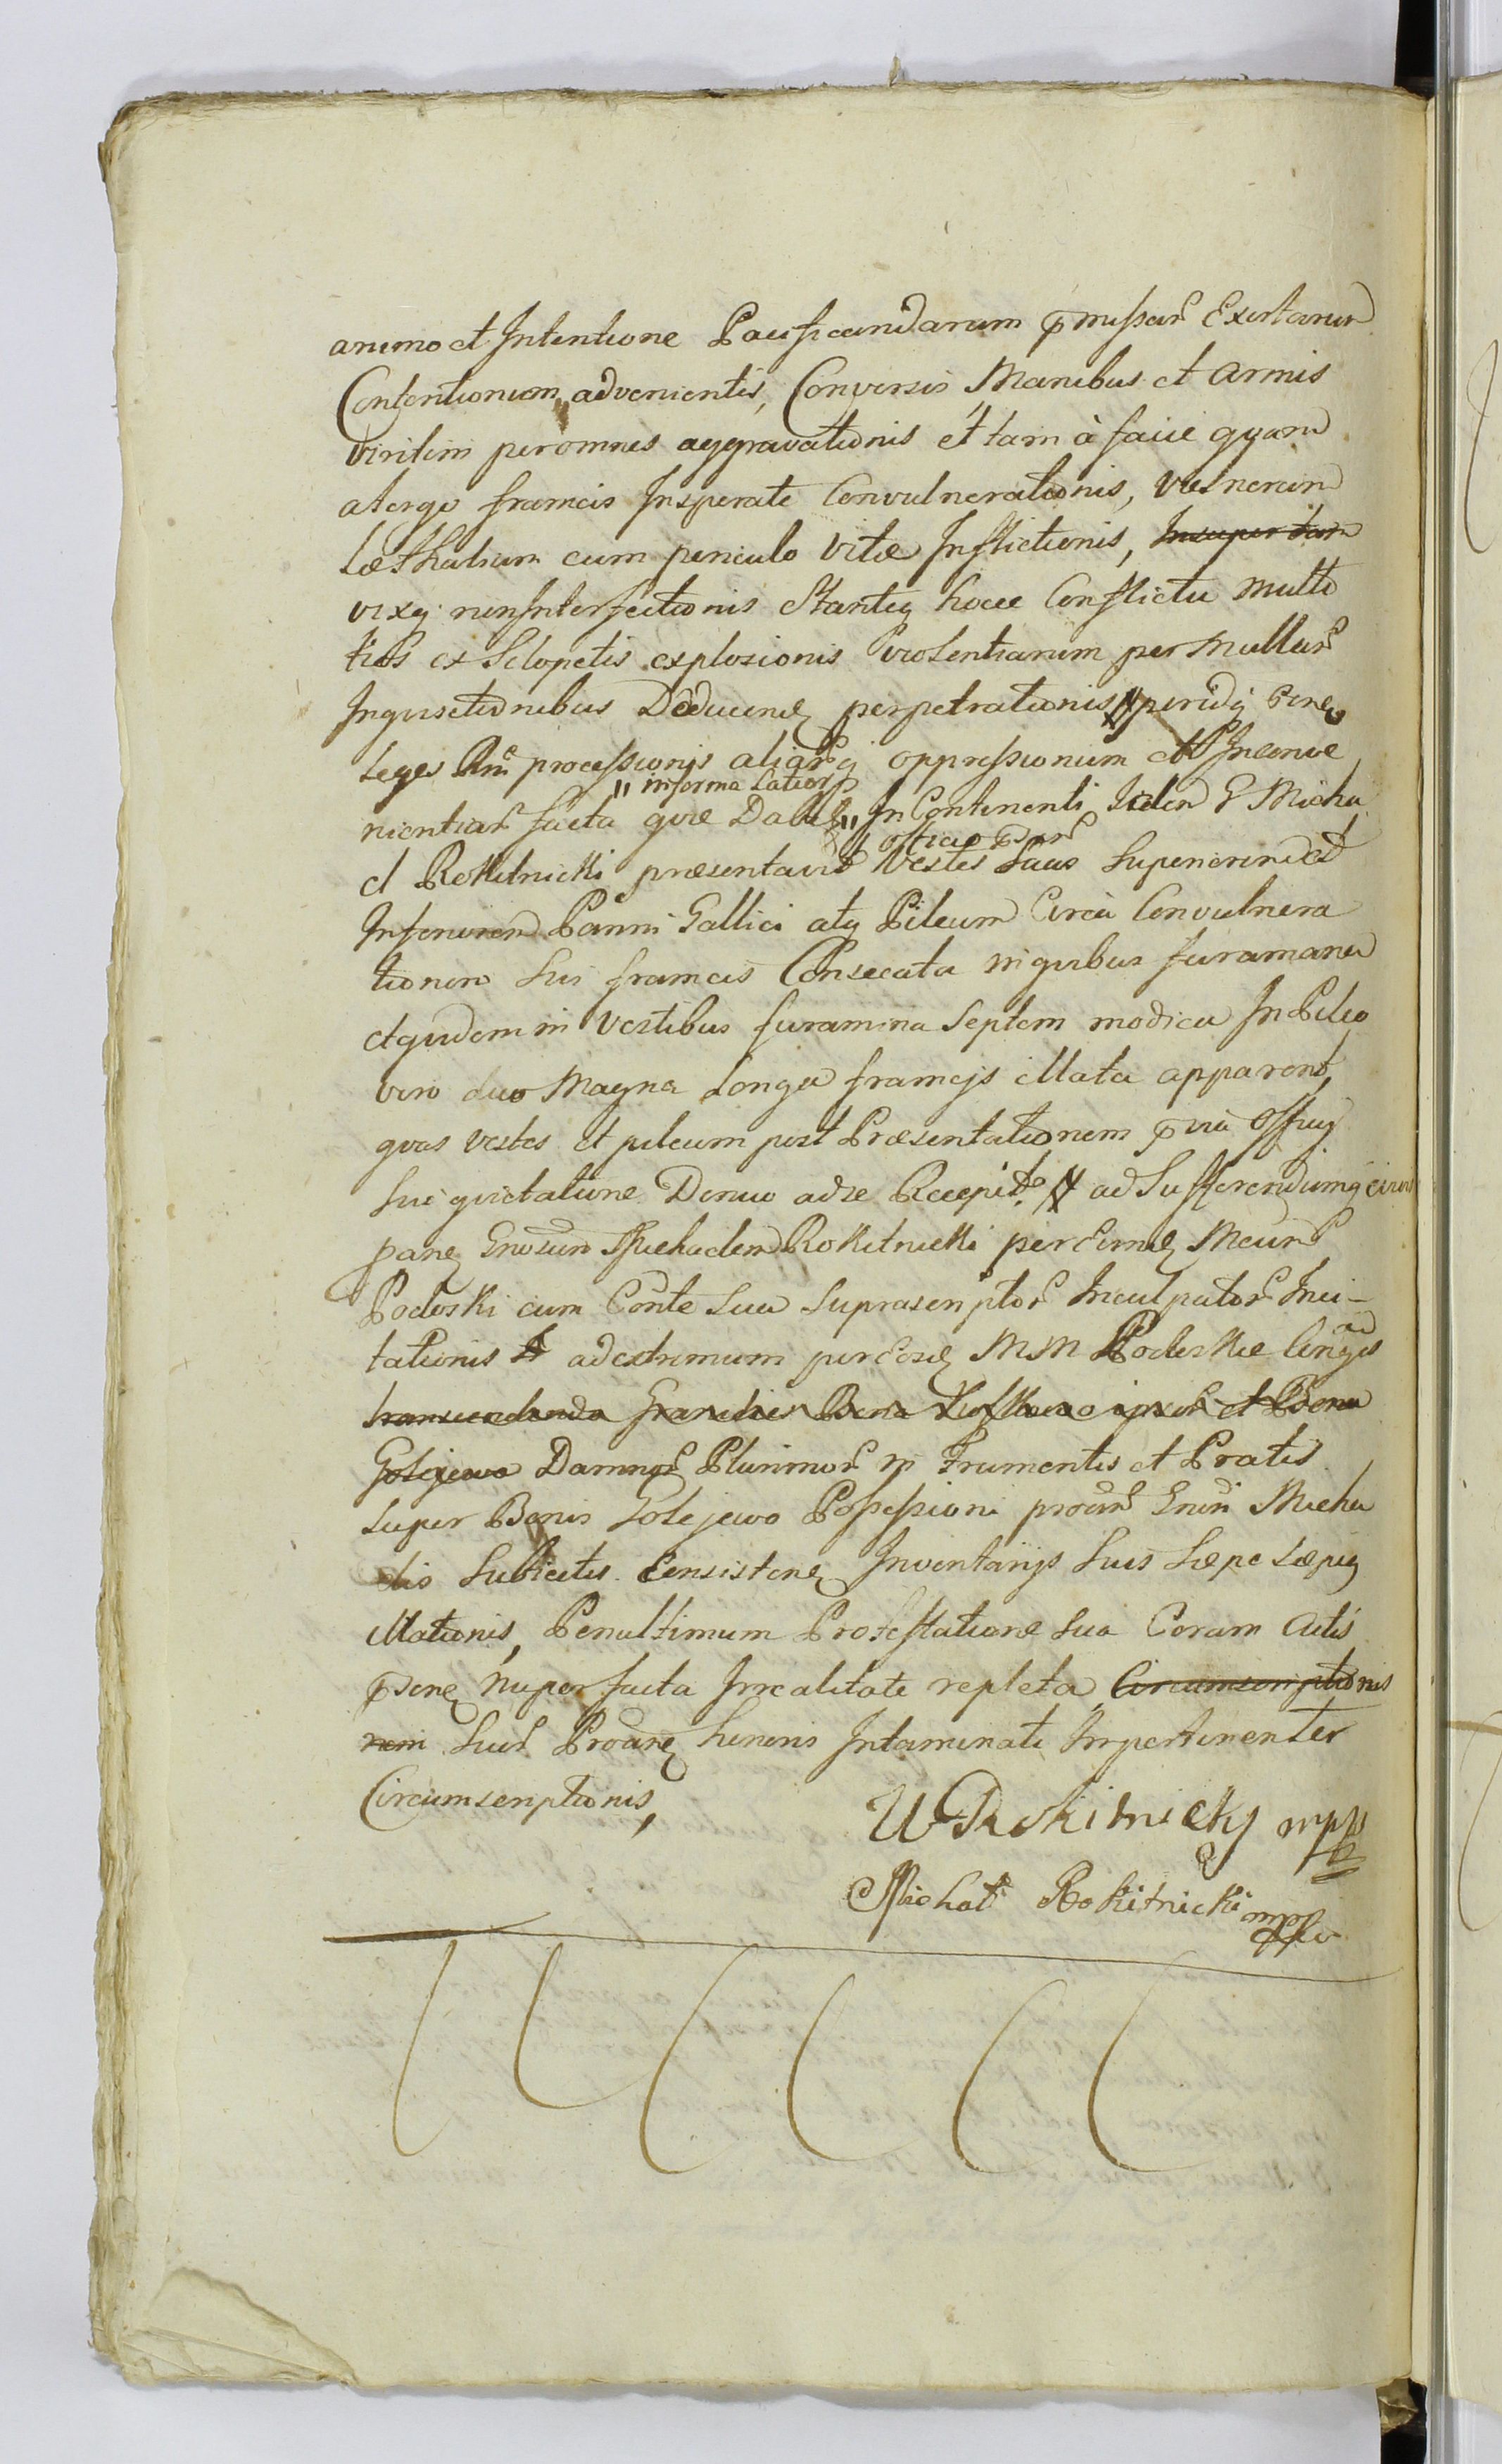 animo et Intentione Pacificandarum missar Exortarum
Contentionum, advenientis, Conversis Manibus et Armis
viritim per omnes aggravationis et tam à facie quam
a tergo frameis Insperate Convulnerationis, Vulnerum
Læthalium cum periculo vitæ Inflictionis, Insuper tam
vixq nonInterfectionis Stanteq hocce Conflictu Multo
ties ex Sclopetis explosionis violentiarum per Mullar
Inquisitionibus Deducend perpetrationis
Leges processionis aliarq oppressionum et Inconve
"informa Latiori
nientiar facta quæ Dabit " In Continenti Idem G Micha
officio
el Rokitnicki præsentavit Vestes Suas Superiorem et
Inferiorem Panni Gallici atq Pileum Circa Convulnera
tionem Sui frameis Consecata in quibus furamina
et quidem in Vestibus furamina Septem modica In Pileo
vero duo Magna Longa frameis illata apparent,
quas vestes et pileum post Præsentationem Officij
sui quietatione Denuo ad se Recepit. ad Sufferendumq
Michaelem Rokitnicki per
Podoski cum Conte Sua Suprascriptor Inculpator Inci-
tationis ad extremum per MM Podoskie
transcendenda Granicies Bona et Bona
Golejewo Damnor Plurimor in Frumentis et Pratis
super Bonis Golejewo Possessioni Micha
elis Subiectis Consisten Inventarijs Suis Sæpe Sæpiq
illationis, Penultimum Protestatione sua Coram Actis
nuper facta Irrealitate repleta Circumscriptionis
nem Honoris Intaminati Impertinenter
Circumscriptionis,
W Rokitnicky mpp
Michał Rokitnicki mpp